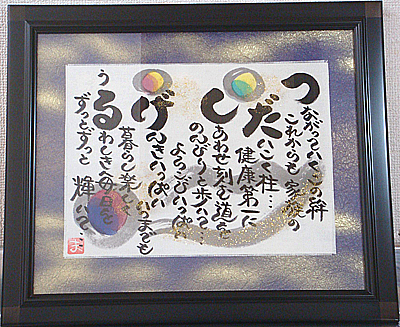 つながっていくこの絆
これからも 家族の
だいこく柱…
健康第一に
しあわせ刻む道を
のんびりと歩いて…
よろこびいっぱい
げんきいっぱい
いつまでも
暮らし楽しく
うるわしき毎日を
ずっとずっと 輝いて…